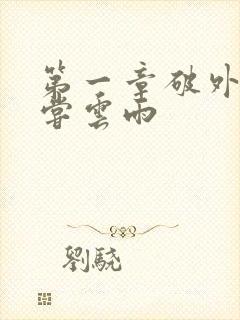 第一章破外
嘗雲雨
劉驍